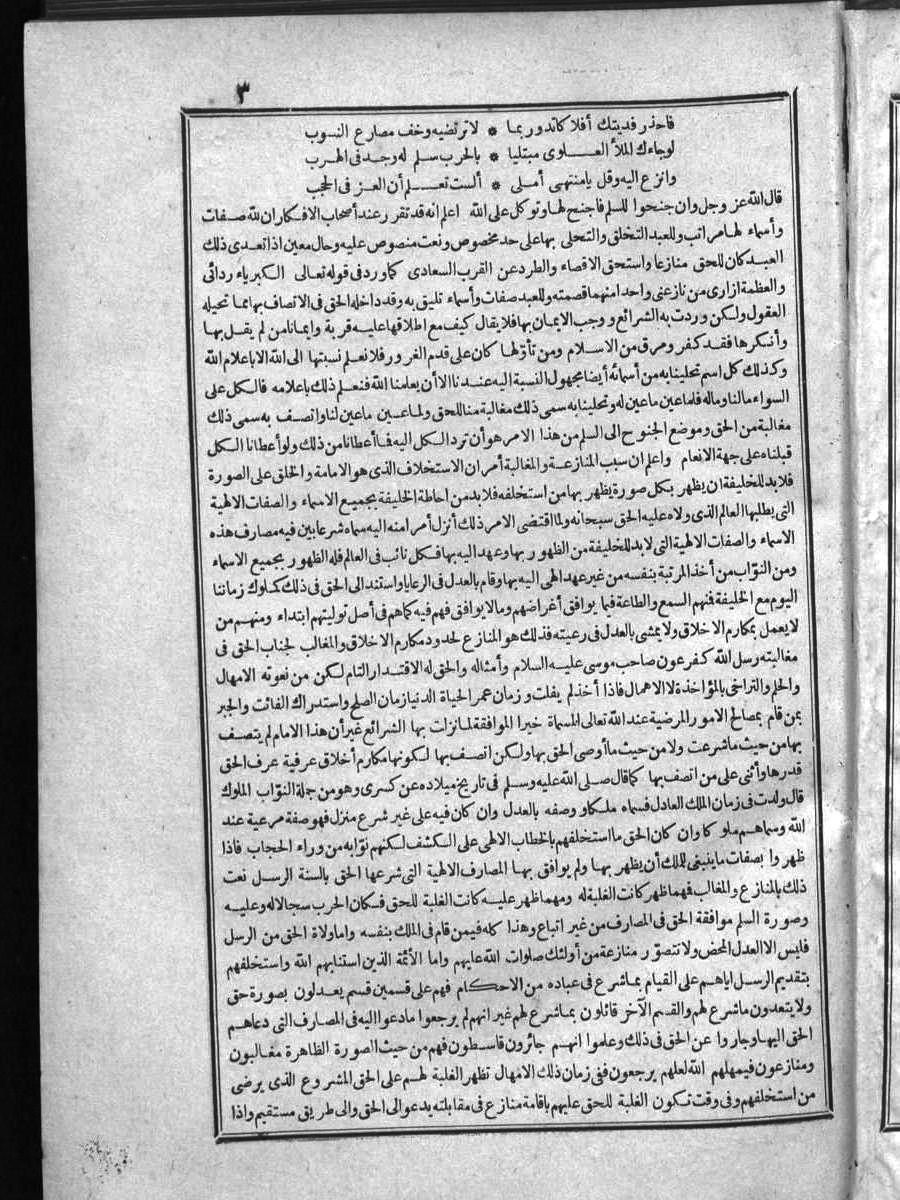 ٣
فاحذر فديتك أفلاكا تدور بما * لا ترتضيه وخف مصارع النوب
لو جاءك الملأ العلوى مبتليا * بالحرب سلم له وجد فى الهرب
وانزع اليه وقل يا منتهى أملى * ألست تعلم أن العز فى الحجب
قال الله عز وجل وان جنحوا للسلم فاجنح لها وتوكل على الله اعلم انه قد تقرر عند أصحاب الافكار ان لله صفات
وأسماء لها مراتب وللعبد التخلق والتحلى بها على حد مخصوص ونعت منصوص عليه وحال معين اذا تعدى ذلك
العبد كان للحق منازعا واستحق الاقصاء والطرد عن القرب السعادى كما ورد فى قوله تعالى الكبرياء ردائى
والعظمة ازارى من نازعنى واحدا منهما قصمته وللعبد صفات وأسماء تليق به وقد داخله الحق فى الاتصاف بها مما تحيله
العقول ولكن وردت به الشرائع ووجب الايمان بها فلا يقال كيف مع اطلاقها عليه قربة وايمانا من لم يقل بها
وأنكرها فقد كفر ومرق من الاسلام ومن تأولها كان على قدم الغرور فلا نعلم نسبتها الى الله الا باعلام الله
وكذلك كل اسم تحلينا به من أسمائه أيضا مجهول النسبة اليه عندنا الا أن يعلمنا الله فنعلم ذلك باعلامه فالكل على
السواء ما لنا وما له فلما عين ما عين له وتحلينا به سمى ذلك مغالبة منا للحق ولما عين ما عين لنا واتصف به سمى ذلك
مغالبة من الحق وموضع الجنوح الى السلم من هذا الامر هو أن ترد الكل اليه فما أعطانا من ذلك ولو أعطانا الكل
قبلناه على جهة الانعام واعلم ان سبب المنازعة والمغالبة أمران الاستخلاف الذى هو الامامة والخلق على الصورة
فلا بد للخليفة ان يظهر بكل صورة يظهر بها من استخلفه فلا بد من احاطة الخليفة بجميع الاسماء والصفات الالهية
التى يطلبها العالم الذى ولاه عليه الحق سبحانه ولما اقتضى الامر ذلك أنزل أمرا منه اليه سماه شرعا بين فيه مصارف هذه
الاسماء والصفات الالهية التى لا بد للخليفة من الظهور بها وعهد اليه بها فكل نائب فى العالم فله الظهور بجميع الاسماء
ومن النواب من أخذ المرتبة بنفسه من غير عهد الهى اليه بها وقام بالعدل فى الرعايا واستند الى الحق فى ذلك كملوك زماننا
اليوم مع الخليفة فنهم السمع والطاعة فيما يوافق أغراضهم وما لا يوافق فهم فيه كما هم فى أصل توليتهم ابتداء ومنهم من
لا يعمل بمكارم الاخلاق ولا يمشى بالعدل فى رعيته فذلك هو المنازع لحدود مكارم الاخلاق والمغالب لجناب الحق فى
مغالبته رسل الله كفرعون صاحب موسى عليه السلام وأمثاله والحق له الاقتدار التام لكن من نعوته الامهال
والحلم والتراخى بالمؤاخذة لا الاهمال فاذا أخذ لم يفلت وزمان عمر الحياة الدنيا زمان الصلح واستدراك الفائت والجبر
بمن قام بمصالح الامور المرضية عند الله تعالى المسماة خيرا الموافقة لما نزلت بها الشرائع غير أن هذا الامام لم يتصف
بها من حيث ما شرعت ولا من حيث ما أوصى الحق بها ولكن اتصف بها لكونها مكارم أخلاق عرفية عرف الحق
قدرها وأثنى على من اتصف بها كما قال صلى الله عليه وسلم فى تاريخ ميلاده عن كسرى وهو من جملة النواب الملوك
قال ولدت فى زمان الملك العادل فسماه ملكا ووصفه بالعدل وان كان فيه على غير شرع منزل فهو صفة مرعية عند
الله وسماهم ملوكا وان كان الحق ما استخلفهم بالخطاب الالهى على الكشف لكنهم نوابه من وراء الحجاب فاذا
ظهروا بصفات ما ينبغى للملك أن يظهر بها ولم يوافق بها المصارف الالهية التى شرعها الحق بالسنة الرسل نعت
ذلك بالمنازع والمغالب فهما ظهر كانت الغلبة له ومهما ظهر عليه كانت الغلبة للحق فكان الحرب سجالا له وعليه
وصورة السلم موافقة الحق فى المصارف من غير اتباع وهذا كله فيمن قام فى الملك بنفسه واما ولاة الحق من الرسل
فليس الا العدل المحض ولا تتصور منازعة من أولئك صلوات الله عليهم واما الأئمة الذين استنابهم الله واستخلفهم
بتقديم الرسل اياهم على القيام بما شرع فى عباده من الاحكام فهم على قسمين قسم يعدلون بصورة حق
ولا يتعدون ما شرع لهم والقسم الآخر قائلون بما شرع لهم غير انهم لم يرجعوا ما دعوا اليه فى المصارف التى دعاهم
الحق اليها وجاروا عن الحق فى ذلك وعلموا انهم جائرون قاسطون فهم من حيث الصورة الظاهرة مغالبون
ومنازعون فيمهلهم الله لعلهم يرجعون فنى زمان ذلك الامهال تظهر الغلبة لهم على الحق المشروع الذى يرضى
من استخلفهم وفى وقت تكون الغلبة للحق عليهم باقامة منازع فى مقابلته يدعو الى الحق والى طريق مستقيم واذا